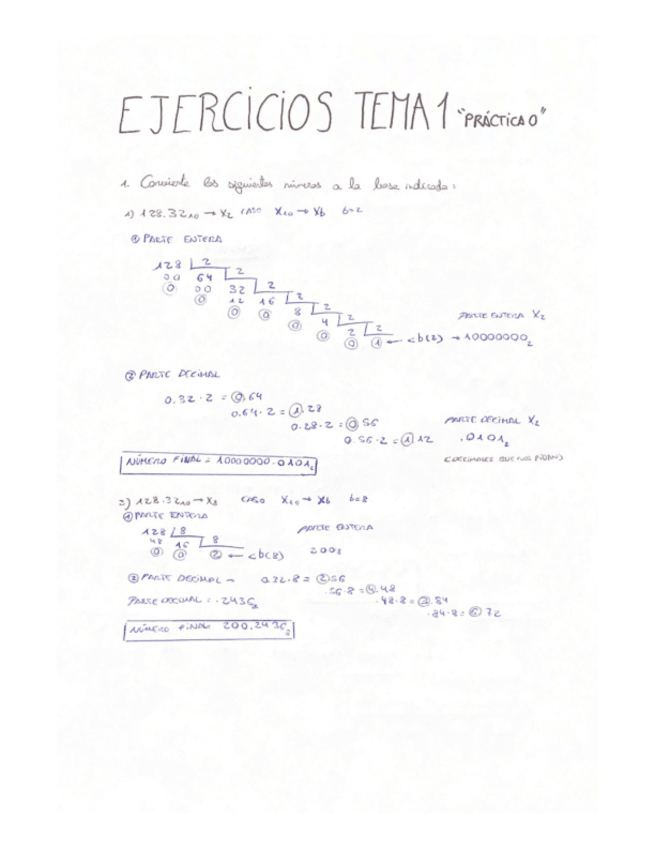 EJERCICIOS TEMA 1 "PRÁCTICA 0"
1. Convierte los siguientes números a la base indicada:
1) 128.32₁₀ → X₂ CASO X₁₀ → Xb b=2
① PARTE ENTERA
128 2
00 64 2
0 00 32 2
0 12 16 2
0 0 8 2
0 4 2
0 2 2
0 1 ← <b(2) → 10000000₂
PARTE ENTERA X₂
② PARTE DECIMAL
0.32 · 2 = 0.64
0.64 · 2 = 1.28
0.28 · 2 = 0.56
0.56 · 2 = 1.12
PARTE DECIMAL X₂
.0101₂
NÚMERO FINAL = 10000000.0101₂
2) 128.32₁₀ → X₈ CASO X₁₀ → Xb b=8
① PARTE ENTERA
128 8
48 16 8
0 0 2 ← <b(8)
PARTE ENTERA
200₈
② PARTE DECIMAL → 0.32 · 8 = 2.56
.56 · 8 = 4.48
.48 · 8 = 3.84
.84 · 8 = 6.72
PARTE DECIMAL = .2436₈
NÚMERO FINAL 200.2436₈